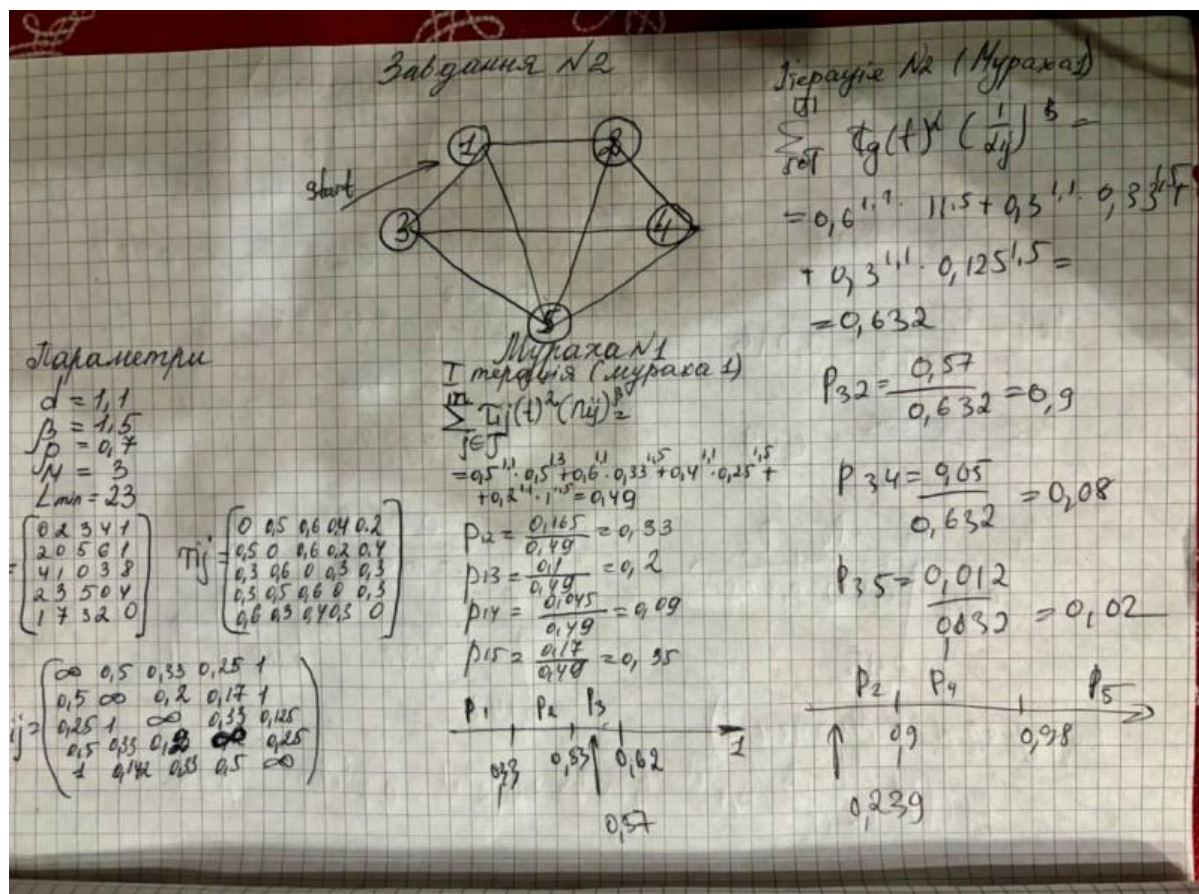 Завдання №2
1 2
start
3 4
5
Параметри
α = 1,1
β = 1,5
ρ = 0,7
N = 3
Lmin = 23
= [0 2 3 4 1
2 0 5 6 1
4 1 0 3 8
2 3 5 0 4
1 7 3 2 0]
τij = [0 0,5 0,6 0,4 0.2
0,5 0 0,6 0,2 0,4
0,3 0,6 0 0,3 0,3
0,3 0,5 0,6 0 0,3
0,6 0,3 0,4 0,3 0]
ij = (∞ 0,5 0,33 0,25 1
0,5 ∞ 0,2 0,17 1
0,25 1 ∞ 0,33 0,125
0,5 0,33 0,2 ∞ 0,25
1 0,142 0,33 0,5 ∞)
Мураха №1
I терація (мураха 1)
∑ τij(t)^α (nij)^β =
= 0,5^1,1 · 0,5^1,5 + 0,6^1,1 · 0,33^1,5 + 0,4^1,1 · 0,25^1,5 +
+ 0,2^1,1 · 1^1,5 = 0,49
P12 = 0,165 / 0,49 = 0,33
P13 = 0,1 / 0,49 = 0,2
P14 = 0,045 / 0,49 = 0,09
P15 = 0,17 / 0,49 = 0,35
P1 P2 P3
0,33 0,53 0,62 1
0,57
Ітерація №2 (Мураха 1)
(t)^α (1/dij)^β =
= 0,6^1,1 · 1^1,5 + 0,3^1,1 · 0,33^1,5 +
+ 0,3^1,1 · 0,125^1,5 =
= 0,632
P32 = 0,57 / 0,632 = 0,9
P34 = 0,05 / 0,632 = 0,08
P35 = 0,012 / 0,632 = 0,02
P2 P4 P5
0,9 0,98
0,239